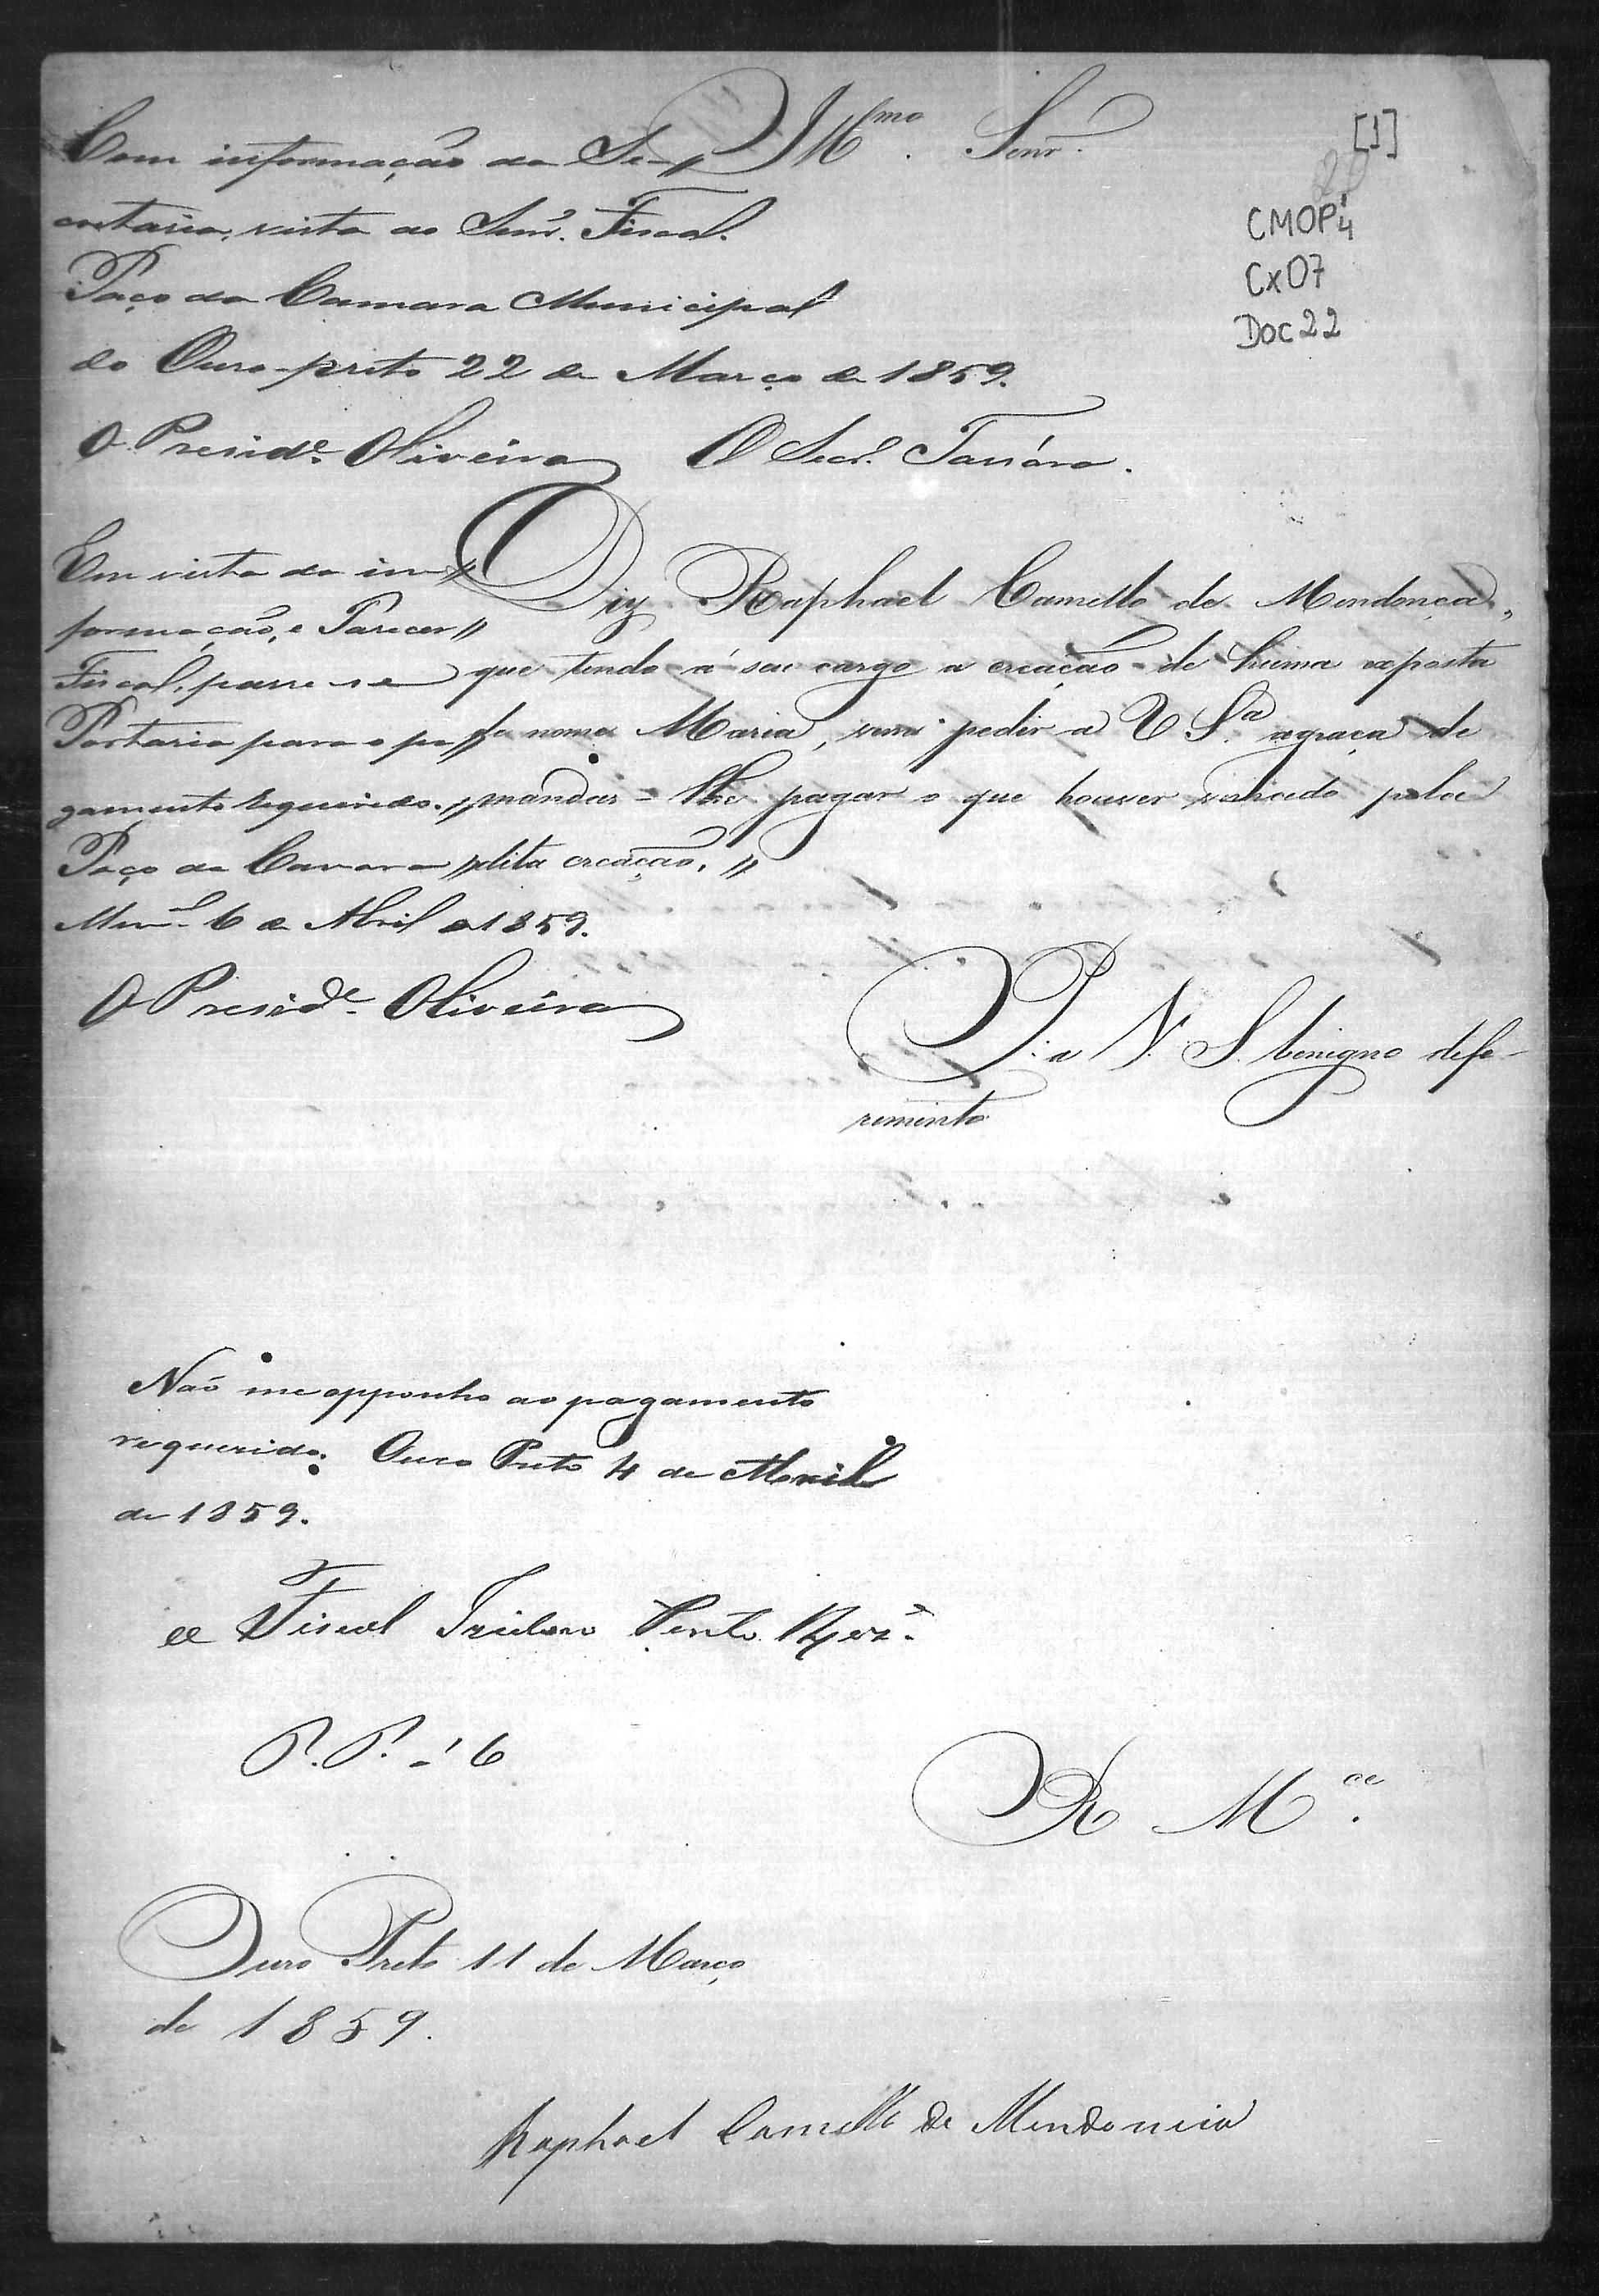 Illmo. Senr.
[1]
20
CMOP4
Cx07
Doc 22
Com informação da Se-
cretaria, vista ao Senr. Fiscal.
Paço da Camara Municipal
do Ouro-preto 22 de Março de 1859.
O Preside. Oliveira O Secr. Tassára.
Em vista da in-
formação, e Parecer
Fiscal, passe-se
Portaria para o pa-
gamento requerido.
Paço da Camara
Munl. 6 de Abril de 1859.
O Preside. Oliveira
Diz Raphael Camello de Mendonça,
que tendo á seu cargo a creação de huma exposta
de nome Maria, vem pedir a V Sa. a graça de
mandar-lhe pagar o que houver vencido pela
dita creação.
P. a V. S. benigno defe-
rimento
Não me opponho ao pagamento
requerido. Ouro Preto 4 de Abril
de 1859.
Fiscal
P. P. a 6
R Mce.
Ouro Preto 11 de Março
de 1859.
Raphael Camello de Mendoncia